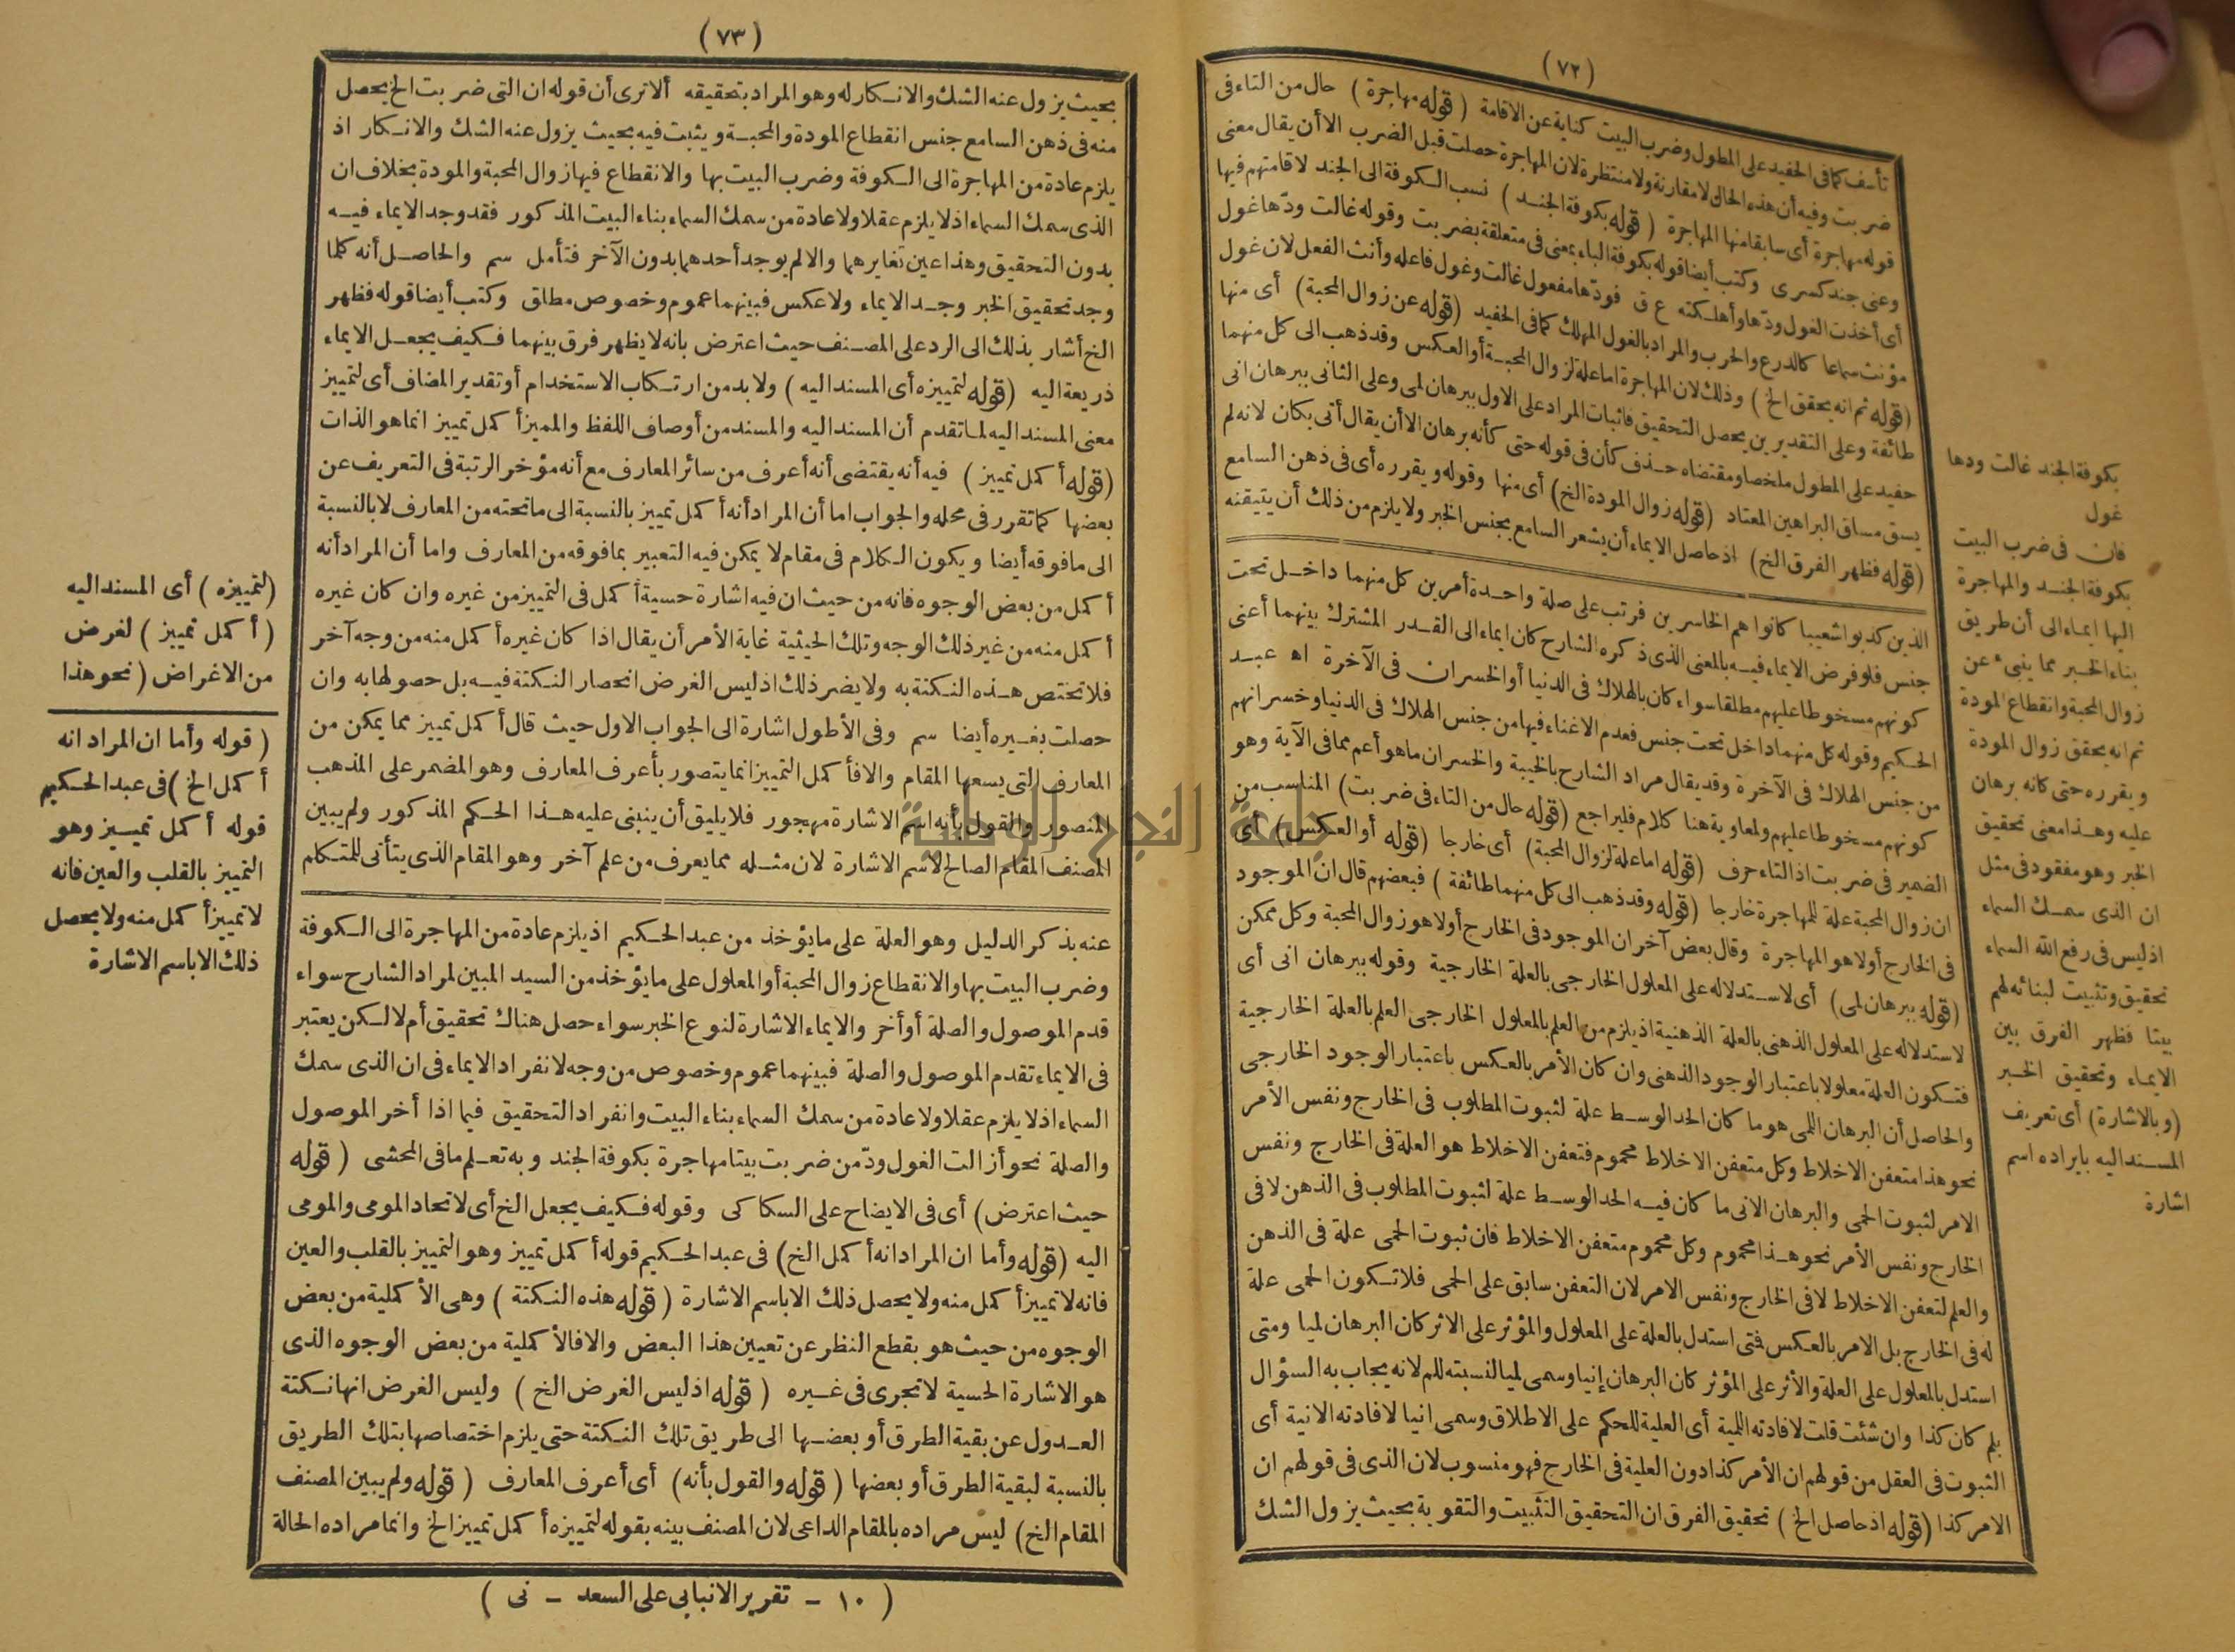 (٧٢)
تأسف كما فى الحفيد على المطول وضرب البيت كناية عن الاقامة (قوله مهاجرة) حال من التاء فى
ضربت وفيه أن هذه الحال لا مقارنة ولا منتظرة لان المهاجرة حصلت قبل الضرب الا أن يقال معنى
قوله مهاجرة أى سابقا منها المهاجرة (قوله بكوفة الجند) نسب الكوفة الى الجند لاقامتهم فيها
وعنى جند كسرى وكتب أيضا قوله بكوفة الباء بمعنى فى متعلقة بضربت وقوله غالت ودّها غول
أى أخذت الغول ودّها وأهلكته ع ق فودّها مفعول غالت وغول فاعله وأنث الفعل لان غول
مؤنث سماعا كالدرع والحرب والمراد بالغول المهلك كما فى الحفيد (قوله عن زوال المحبة) أى منها
(قوله ثم انه يحقق الخ) وذلك لان المهاجرة اما علة لزوال المحبة أو العكس وقد ذهب الى كل منهما
طائفة وعلى التقديرين يحصل التحقيق فاثبات المراد على الاول ببرهان لمى وعلى الثانى ببرهان انى
حفيد على المطول ملخصا ومقتضاه حذف كأن فى قوله حتى كأنه برهان الا أن يقال أتى بكان لانه لم
يسق مساق البراهين المعتاد (قوله زوال المودة الخ) أى منها وقوله ويقرره أى فى ذهن السامع
(قوله فظهر الفرق الخ) اذ حاصل الايماء أن يشعر السامع بجنس الخبر ولا يلزم من ذلك أن يتيقنه
الذين كذبوا شعيبا كانوا هم الخاسرين فرتب على صلة واحدة أمرين كل منهما داخل تحت
جنس فلو فرض الايماء فيه بالمعنى الذى ذكره الشارح كان ايماء الى القدر المشترك بينهما أعنى
كونهم مسخوطا عليهم مطلقا سواء كان بالهلاك فى الدنيا أو الخسران فى الآخرة اه عبد
الحكيم وقوله كل منهما داخل تحت جنس فعدم الاغناء فيها من جنس الهلاك فى الدنيا وخسرانهم
من جنس الهلاك فى الآخرة وقد يقال مراد الشارح بالخيبة والخسران ما هو أعم مما فى الآية وهو
كونهم مسخوطا عليهم ولمعاوية هنا كلام فليراجع (قوله حال من التاء فى ضربت) المناسب من
الضمير فى ضربت اذ التاء حرف (قوله اما علة لزوال المحبة) أى خارجا (قوله أو العكس) أى
ان زوال المحبة علة للمهاجرة خارجا (قوله وقد ذهب الى كل منهما طائفة) فبعضهم قال ان الموجود
فى الخارج أولا هو المهاجرة وقال بعض آخر ان الموجود فى الخارج أولا هو زوال المحبة وكل ممكن
(قوله ببرهان لمى) أى لاستدلاله على المعلول الخارجى بالعلة الخارجية وقوله ببرهان انى أى
لاستدلاله على المعلول الذهنى بالعلة الذهنية اذ يلزم من العلم بالمعلول الخارجى العلم بالعلة الخارجية
فتكون العلة معلولا باعتبار الوجود الذهنى وان كان الأمر بالعكس باعتبار الوجود الخارجى
والحاصل أن البرهان اللمى هو ما كان الحد الوسط علة لثبوت المطلوب فى الخارج ونفس الأمر
نحو هذا متعفن الاخلاط وكل متعفن الاخلاط محموم فتعفن الاخلاط هو العلة فى الخارج ونفس
الامر لثبوت الحمى والبرهان الانى ما كان فيه الحد الوسط علة لثبوت المطلوب فى الذهن لا فى
الخارج ونفس الأمر نحو هذا محموم وكل محموم متعفن الاخلاط فان ثبوت الحمى علة فى الذهن
والعلم لتعفن الاخلاط لا فى الخارج ونفس الامر لان التعفن سابق على الحمى فلا تكون الحمى علة
له فى الخارج بل الامر بالعكس فمتى استدل بالعلة على المعلول والمؤثر على الاثر كان البرهان لميا ومتى
استدل بالمعلول على العلة والأثر على المؤثر كان البرهان إنيا وسمى لميا لنسبته للم لانه يجاب به السؤال
بلم كان كذا وان شئت قلت لافادته اللمية أى العلية للحكم على الاطلاق وسمى انيا لافادته الانية أى
الثبوت فى العقل من قولهم ان الأمر كذا دون العلية فى الخارج فهو منسوب لان الذى فى قولهم ان
الامر كذا (قوله اذ حاصل الخ) تحقيق الفرق ان التحقيق التثبيت والتقوية بحيث يزول الشك
بكوفة الجند غالت ودها
غول
فان فى ضرب البيت
بكوفة الجند والمهاجرة
اليها ايماء الى أن طريق
بناء الخبر مما ينبىء عن
زوال المحبة وانقطاع المودة
ثم انه يحقق زوال المودة
ويقرره حتى كانه برهان
عليه وهذا معنى تحقيق
الخبر وهو مفقود فى مثل
ان الذى سمك السماء
اذ ليس فى رفع الله السماء
تحقيق وتثبيت لبنائه لهم
بيتا فظهر الفرق بين
الايماء وتحقيق الخبر
(وبالاشارة) أى تعريف
المسند اليه بايراده اسم
اشارة
(٧٣)
بحيث يزول عنه الشك والانكار له وهو المراد بتحقيقه ألا ترى أن قوله ان التى ضربت الخ يحصل
منه فى ذهن السامع جنس انقطاع المودة والمحبة ويثبت فيه بحيث يزول عنه الشك والانكار اذ
يلزم عادة من المهاجرة الى الكوفة وضرب البيت بها والانقطاع فيها زوال المحبة والمودة بخلاف ان
الذى سمك السماء اذ لا يلزم عقلا ولا عادة من سمك السماء بناء البيت المذكور فقد وجد الايماء فيه
بدون التحقيق وهذا عين تغايرهما والا لم يوجد أحدهما بدون الآخر فتأمل سم والحاصل أنه كلما
وجد تحقيق الخبر وجد الايماء ولا عكس فبينهما عموم وخصوص مطلق وكتب أيضا قوله فظهر
الخ أشار بذلك الى الرد على المصنف حيث اعترض بانه لا يظهر فرق بينهما فكيف يجعل الايماء
ذريعة اليه (قوله لتمييزه أى المسند اليه) ولا بد من ارتكاب الاستخدام أو تقدير المضاف أى لتمييز
معنى المسند اليه لما تقدم أن المسند اليه والمسند من أوصاف اللفظ والمميز أكمل تمييز انما هو الذات
(قوله أكمل تمييز) فيه أنه يقتضى أنه أعرف من سائر المعارف مع أنه مؤخر الرتبة فى التعريف عن
بعضها كما تقرر فى محله والجواب اما أن المراد أنه أكمل تمييز بالنسبة الى ما تحته من المعارف لا بالنسبة
الى ما فوقه أيضا ويكون الكلام فى مقام لا يمكن فيه التعبير بما فوقه من المعارف واما أن المراد أنه
أكمل من بعض الوجوه فانه من حيث ان فيه اشارة حسية أكمل فى التمييز من غيره وان كان غيره
أكمل منه من غير ذلك الوجه وتلك الحيثية غاية الأمر أن يقال اذا كان غيره أكمل منه من وجه آخر
فلا تختص هذه النكتة به ولا يضر ذلك اذ ليس الغرض انحصار النكتة فيه بل حصولها به وان
حصلت بغيره أيضا سم وفى الأطول اشارة الى الجواب الاول حيث قال أكمل تمييز مما يمكن من
المعارف التى يسعها المقام والا فأكمل التمييز انما يتصور بأعرف المعارف وهو المضمر على المذهب
المنصور والقول بأنه اسم الاشارة مهجور فلا يليق أن ينبنى عليه هذا الحكم المذكور ولم يبين
المصنف المقام الصالح لاسم الاشارة لان مثله مما يعرف من علم آخر وهو المقام الذى يتأتى للمتكلم
عنه بذكر الدليل وهو العلة على ما يؤخذ من عبد الحكيم اذ يلزم عادة من المهاجرة الى الكوفة
وضرب البيت بها والانقطاع زوال المحبة أو المعلول على ما يؤخذ من السيد المبين لمراد الشارح سواء
قدم الموصول والصلة أو أخر والايماء الاشارة لنوع الخبر سواء حصل هناك تحقيق أم لا لكن يعتبر
فى الايماء تقدم الموصول والصلة فبينهما عموم وخصوص من وجه لانفراد الايماء فى ان الذى سمك
السماء اذ لا يلزم عقلا ولا عادة من سمك السماء بناء البيت وانفراد التحقيق فيما اذا أخر الموصول
والصلة نحو أزالت الغول ودّ من ضربت بيتا مهاجرة بكوفة الجند وبه تعلم ما فى المحشى (قوله
حيث اعترض) أى فى الايضاح على السكاكى وقوله فكيف يجعل الخ أى لاتحاد المومى والمومى
اليه (قوله وأما ان المراد انه أكمل الخ) فى عبد الحكيم قوله أكمل تمييز وهو التمييز بالقلب والعين
فانه لا تمييز أكمل منه ولا يحصل ذلك الا باسم الاشارة (قوله هذه النكتة) وهى الأكملية من بعض
الوجوه من حيث هو بقطع النظر عن تعيين هذا البعض والا فالأكملية من بعض الوجوه الذى
هو الاشارة الحسية لا تجرى فى غيره (قوله اذ ليس الغرض الخ) وليس الغرض انها نكتة
العدول عن بقية الطرق أو بعضها الى طريق تلك النكتة حتى يلزم اختصاصها بتلك الطريق
بالنسبة لبقية الطرق أو بعضها (قوله والقول بأنه) أى أعرف المعارف (قوله ولم يبين المصنف
المقام الخ) ليس مراده بالمقام الداعى لان المصنف بينه بقوله لتمييزه أكمل تمييز الخ وانما مراده الحالة
(لتمييزه) أى المسند اليه
(أكمل تمييز) لغرض
من الاغراض (نحو هذا
(قوله وأما ان المراد انه
أكمل الخ) فى عبد الحكيم
قوله أكمل تمييز وهو
التمييز بالقلب والعين فانه
لا تمييز أكمل منه ولا يحصل
ذلك الا باسم الاشارة
(١٠ - تقرير الانبابى على السعد - نى)
جامعة النجاح الوطنية